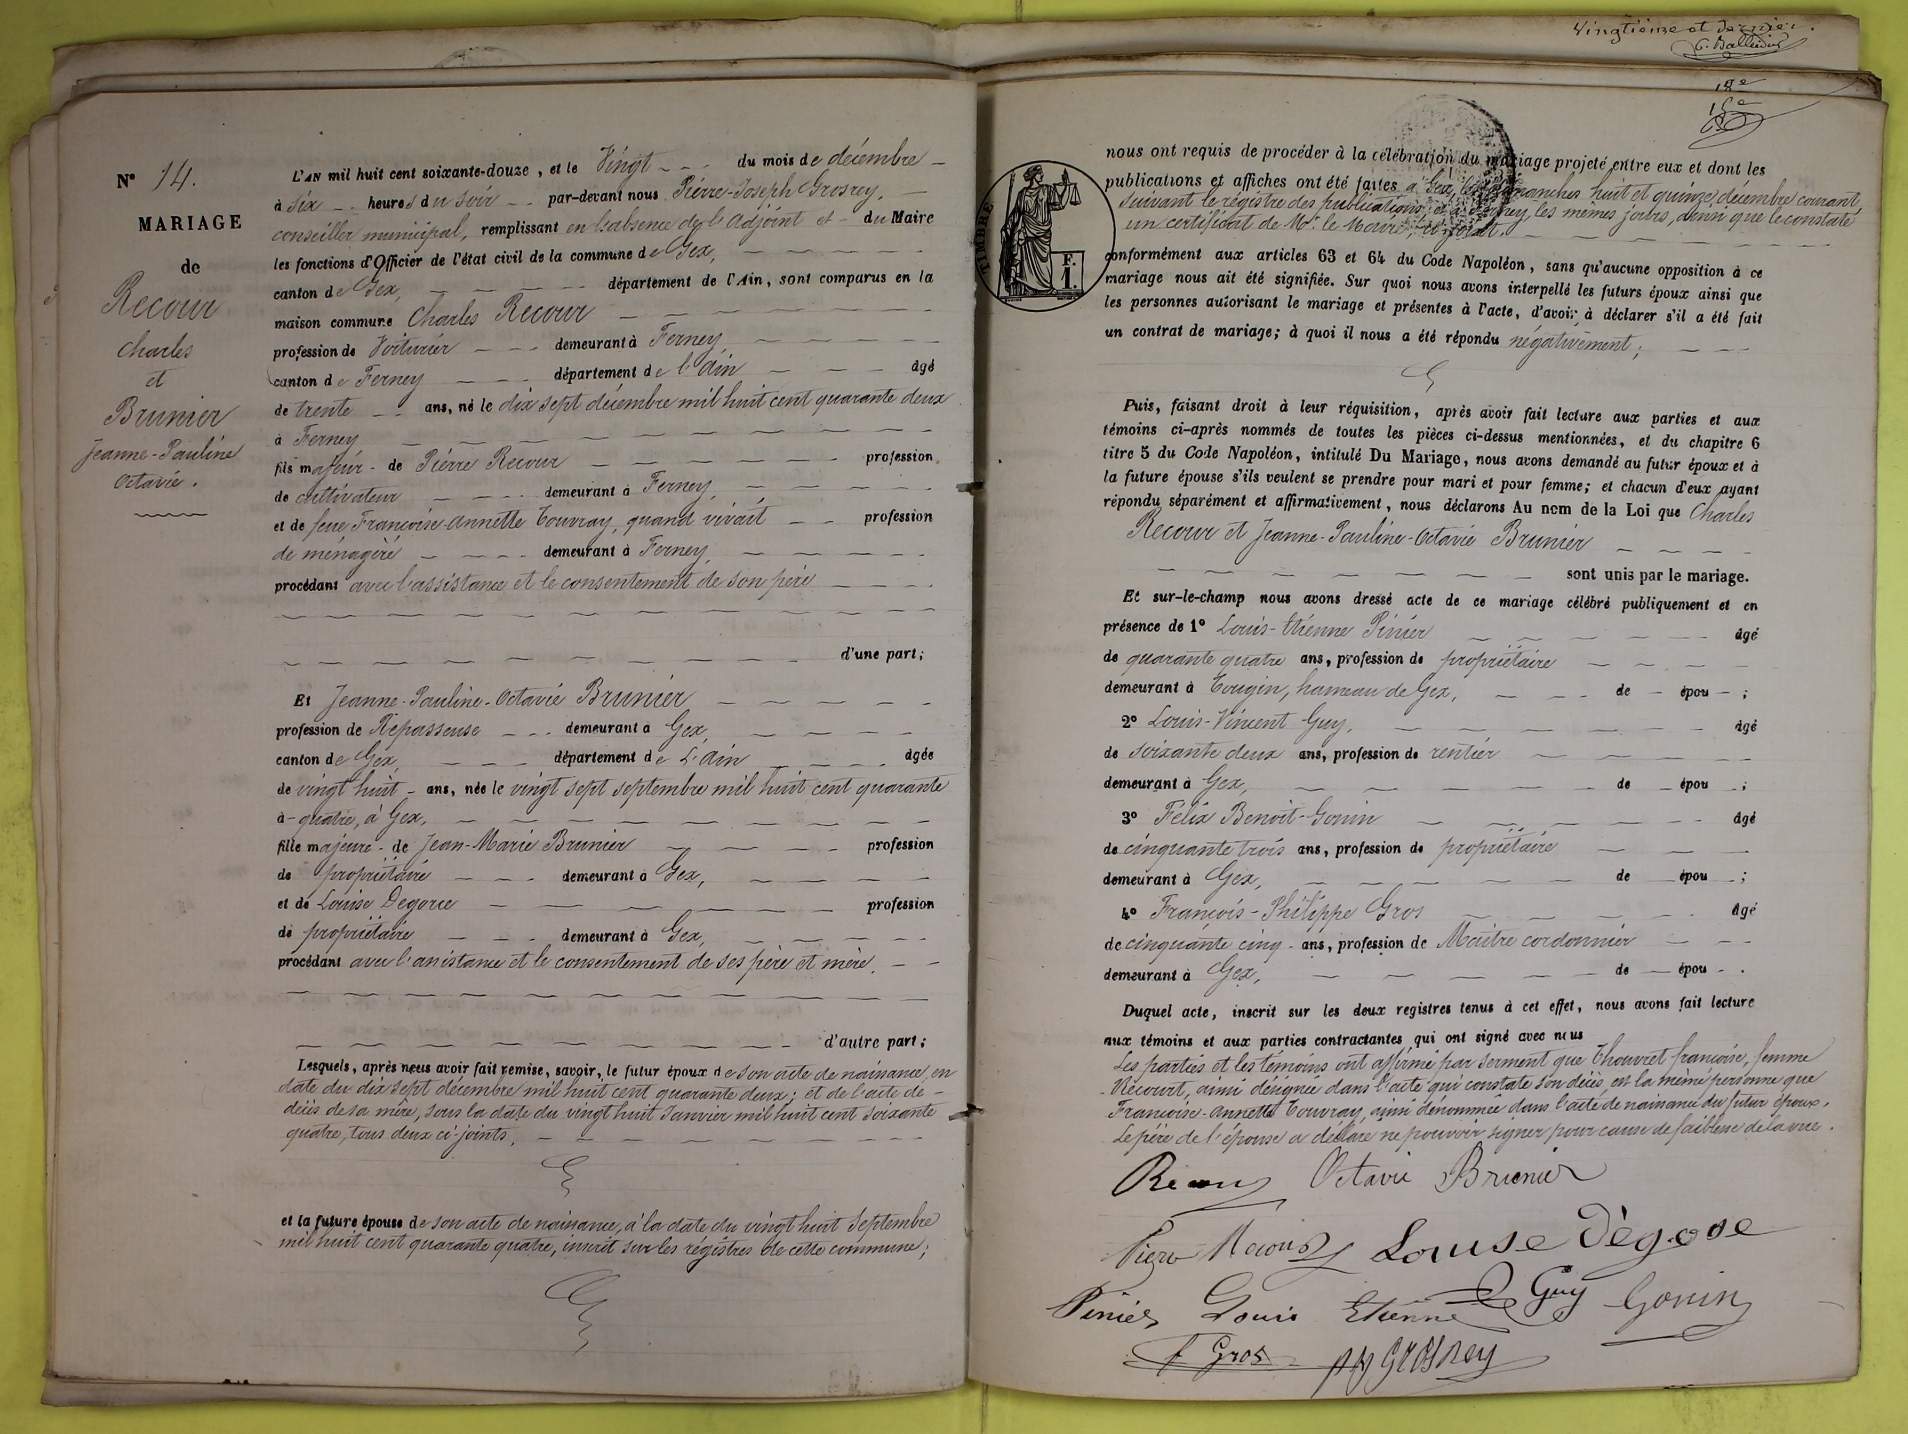 Vingtième et dernier.
18e
15e
N° 14.
MARIAGE
de
Recour
Charles
et
Brunier
Jeanne-Pauline
Octavie.
L'AN mil huit cent soixante-douze, et le Vingt du mois de décembre
à six heures du soir par-devant nous Pierre-Joseph Grosrey,
conseiller municipal, remplissant en l'absence de l'Adjoint et du Maire
les fonctions d'Officier de l'état civil de la commune de Gex,
canton de Gex, département de l'Ain, sont comparus en la
maison commune Charles Recour
profession de Voiturier demeurant à Ferney
canton de Ferney département de l'Ain âgé
de trente ans, né le dix sept décembre mil huit cent quarante deux
à Ferney
fils majeur de Pierre Recour profession
de cultivateur demeurant à Ferney,
et de feue Françoise-Annette Touvray, quand vivait profession
de ménagère demeurant à Ferney,
procédant avec l'assistance et le consentement de son père
d'une part;
Et Jeanne-Pauline-Octavie Brunier
profession de Repasseuse demeurant à Gex,
canton de Gex, département de L'Ain âgée
de vingt huit ans, née le vingt sept septembre mil huit cent quarante
à-quatre, à Gex,
fille majeure de Jean-Marie Brunier profession
de propriétaire demeurant à Gex,
et de Louise Degore profession
de propriétaire demeurant à Gex,
procédant avec l'assistance et le consentement de ses père et mère,
d'autre part;
Lesquels, après nous avoir fait remise, savoir, le futur époux de son acte de naissance, en
date du dix sept décembre mil huit cent quarante deux; et de l'acte de
décès de sa mère, sous la date du vingt huit Janvier mil huit cent soixante
quatre, tous deux ci-joints,
et la future épouse de son acte de naissance, à la date du vingt huit Septembre
mil huit cent quarante quatre, inscrit sur les régistres de cette commune;
TIMBRE
F.
1.
nous ont requis de procéder à la célébration du mariage projeté entre eux et dont les
publications et affiches ont été faites à Gex, les dimanches huit et quinze décembre courant,
suivant le registre des publications, et à Ferney, les mêmes jours, ainsi que le constate
un certificat de Mr. le Maire, ci-joint.
conformément aux articles 63 et 64 du Code Napoléon, sans qu'aucune opposition à ce
mariage nous ait été signifiée. Sur quoi nous avons interpellé les futurs époux ainsi que
les personnes autorisant le mariage et présentes à l'acte, d'avoir à déclarer s'il a été fait
un contrat de mariage; à quoi il nous a été répondu négativement;
Puis, faisant droit à leur réquisition, après avoir fait lecture aux parties et aux
témoins ci-après nommés de toutes les pièces ci-dessus mentionnées, et du chapitre 6
titre 5 du Code Napoléon, intitulé Du Mariage, nous avons demandé au futur époux et à
la future épouse s'ils veulent se prendre pour mari et pour femme; et chacun d'eux ayant
répondu séparément et affirmativement, nous déclarons Au nom de la Loi que Charles
Recour et Jeanne-Pauline-Octavie Brunier
sont unis par le mariage.
Et sur-le-champ nous avons dressé acte de ce mariage célébré publiquement et en
présence de 1° Louis-Etienne Pinier âgé
de quarante quatre ans, profession de propriétaire
demeurant à Tougin, hameau de Gex, de épou ;
2° Louis-Vincent Guy, âgé
de soixante deux ans, profession de rentier
demeurant à Gex, de épou ;
3° Félix Benoit-Gonin âgé
de cinquante trois ans, profession de propriétaire
demeurant à Gex, de épou ;
4° François-Philippe Gros âgé
de cinquante cinq ans, profession de Maître cordonnier
demeurant à Gex, de épou .
Duquel acte, inscrit sur les deux registres tenus à cet effet, nous avons fait lecture
aux témoins et aux parties contractantes qui ont signé avec nous
Les parties et les témoins ont affirmé par serment que Thouvret françoise, femme
Récourt, ainsi désignée dans l'acte qui constate son décès, est la même personne que
Françoise-Annette Touvray, ainsi dénommée dans l'acte de naissance du futur époux.
Le père de l'épouse a déclaré ne pouvoir signer pour cause de faiblesse de la vue.
Octavie Brunier
Louise Dègore
Pinier Louis Etienne Guy Gonin
F Gros GROSREY